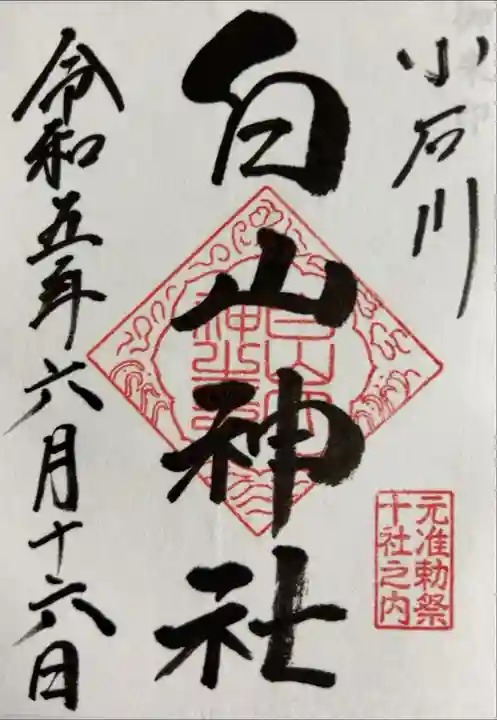 小石川
元准勅祭
十社之内
白山神社
令和五年六月十六日